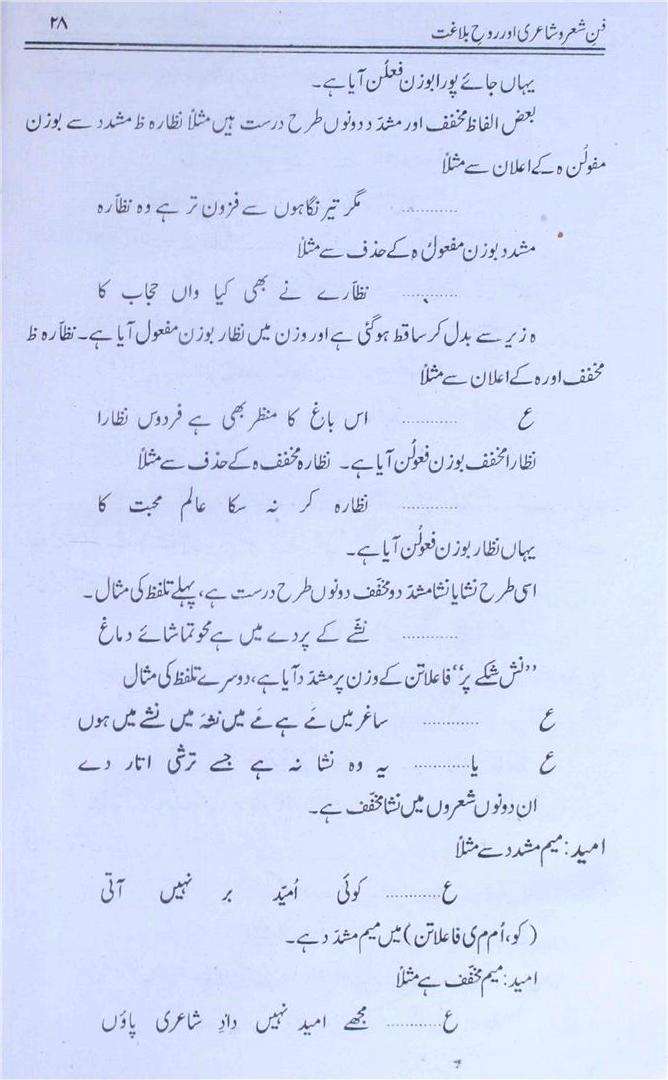 فنِ شعر و شاعری اور روحِ بلاغت ۲۸
یہاں جائے پورا بوزن فعلُن آیا ہے۔
بعض الفاظ مخفف اور مشدّد دونوں طرح درست ہیں مثلاً نظارہ ظ مشدد سے بوزن
مفولُن ہ کے اعلان سے مثلاً
............ مگر تیر نگاہوں سے فزون تر ہے وہ نظّارہ
مشدد بوزن مفعولُ ہ کے حذف سے مثلاً
............ نظّارے نے بھی کیا واں حجاب کا
ہ زیر سے بدل کر ساقط ہوگئی ہے اور وزن میں نظار بوزن مفعول آیا ہے۔ نظّارہ ظ
مخفف اور ہ کے اعلان سے مثلاً
ع ............ اس باغ کا منظر بھی ہے فردوس نظارا
نظارا مخفف بوزن فعولُن آیا ہے۔ نظارہ مخفف ہ کے حذف سے مثلاً
............ نظارہ کر نہ سکا عالم محبت کا
یہاں نظار بوزن فعولُن آیا ہے۔
اسی طرح نشا یا نشا مشدّد و مخفّف دونوں طرح درست ہے، پہلے تلفظ کی مثال۔
............ نشّے کے پردے میں ہے محو تماشائے دماغ
”نش شکے پر“ فاعلاتن کے وزن پر مشدّد آیا ہے، دوسرے تلفظ کی مثال
ع ............ ساغر میں مَے ہے مَے میں نشہ میں نشے میں ہوں
ع یا............ یہ وہ نشا نہ ہے جسے ترشی اتار دے
ان دونوں شعروں میں نشا مخفّف ہے۔
امید: میم مشدد سے مثلاً
ع............ کوئی اُمیّد بر نہیں آتی
(کو، اُم می فاعلاتن) میں میم مشدّد ہے۔
امید: میم مخفّف ہے مثلاً
ع............ مجھے امید نہیں دادِ شاعری پاؤں